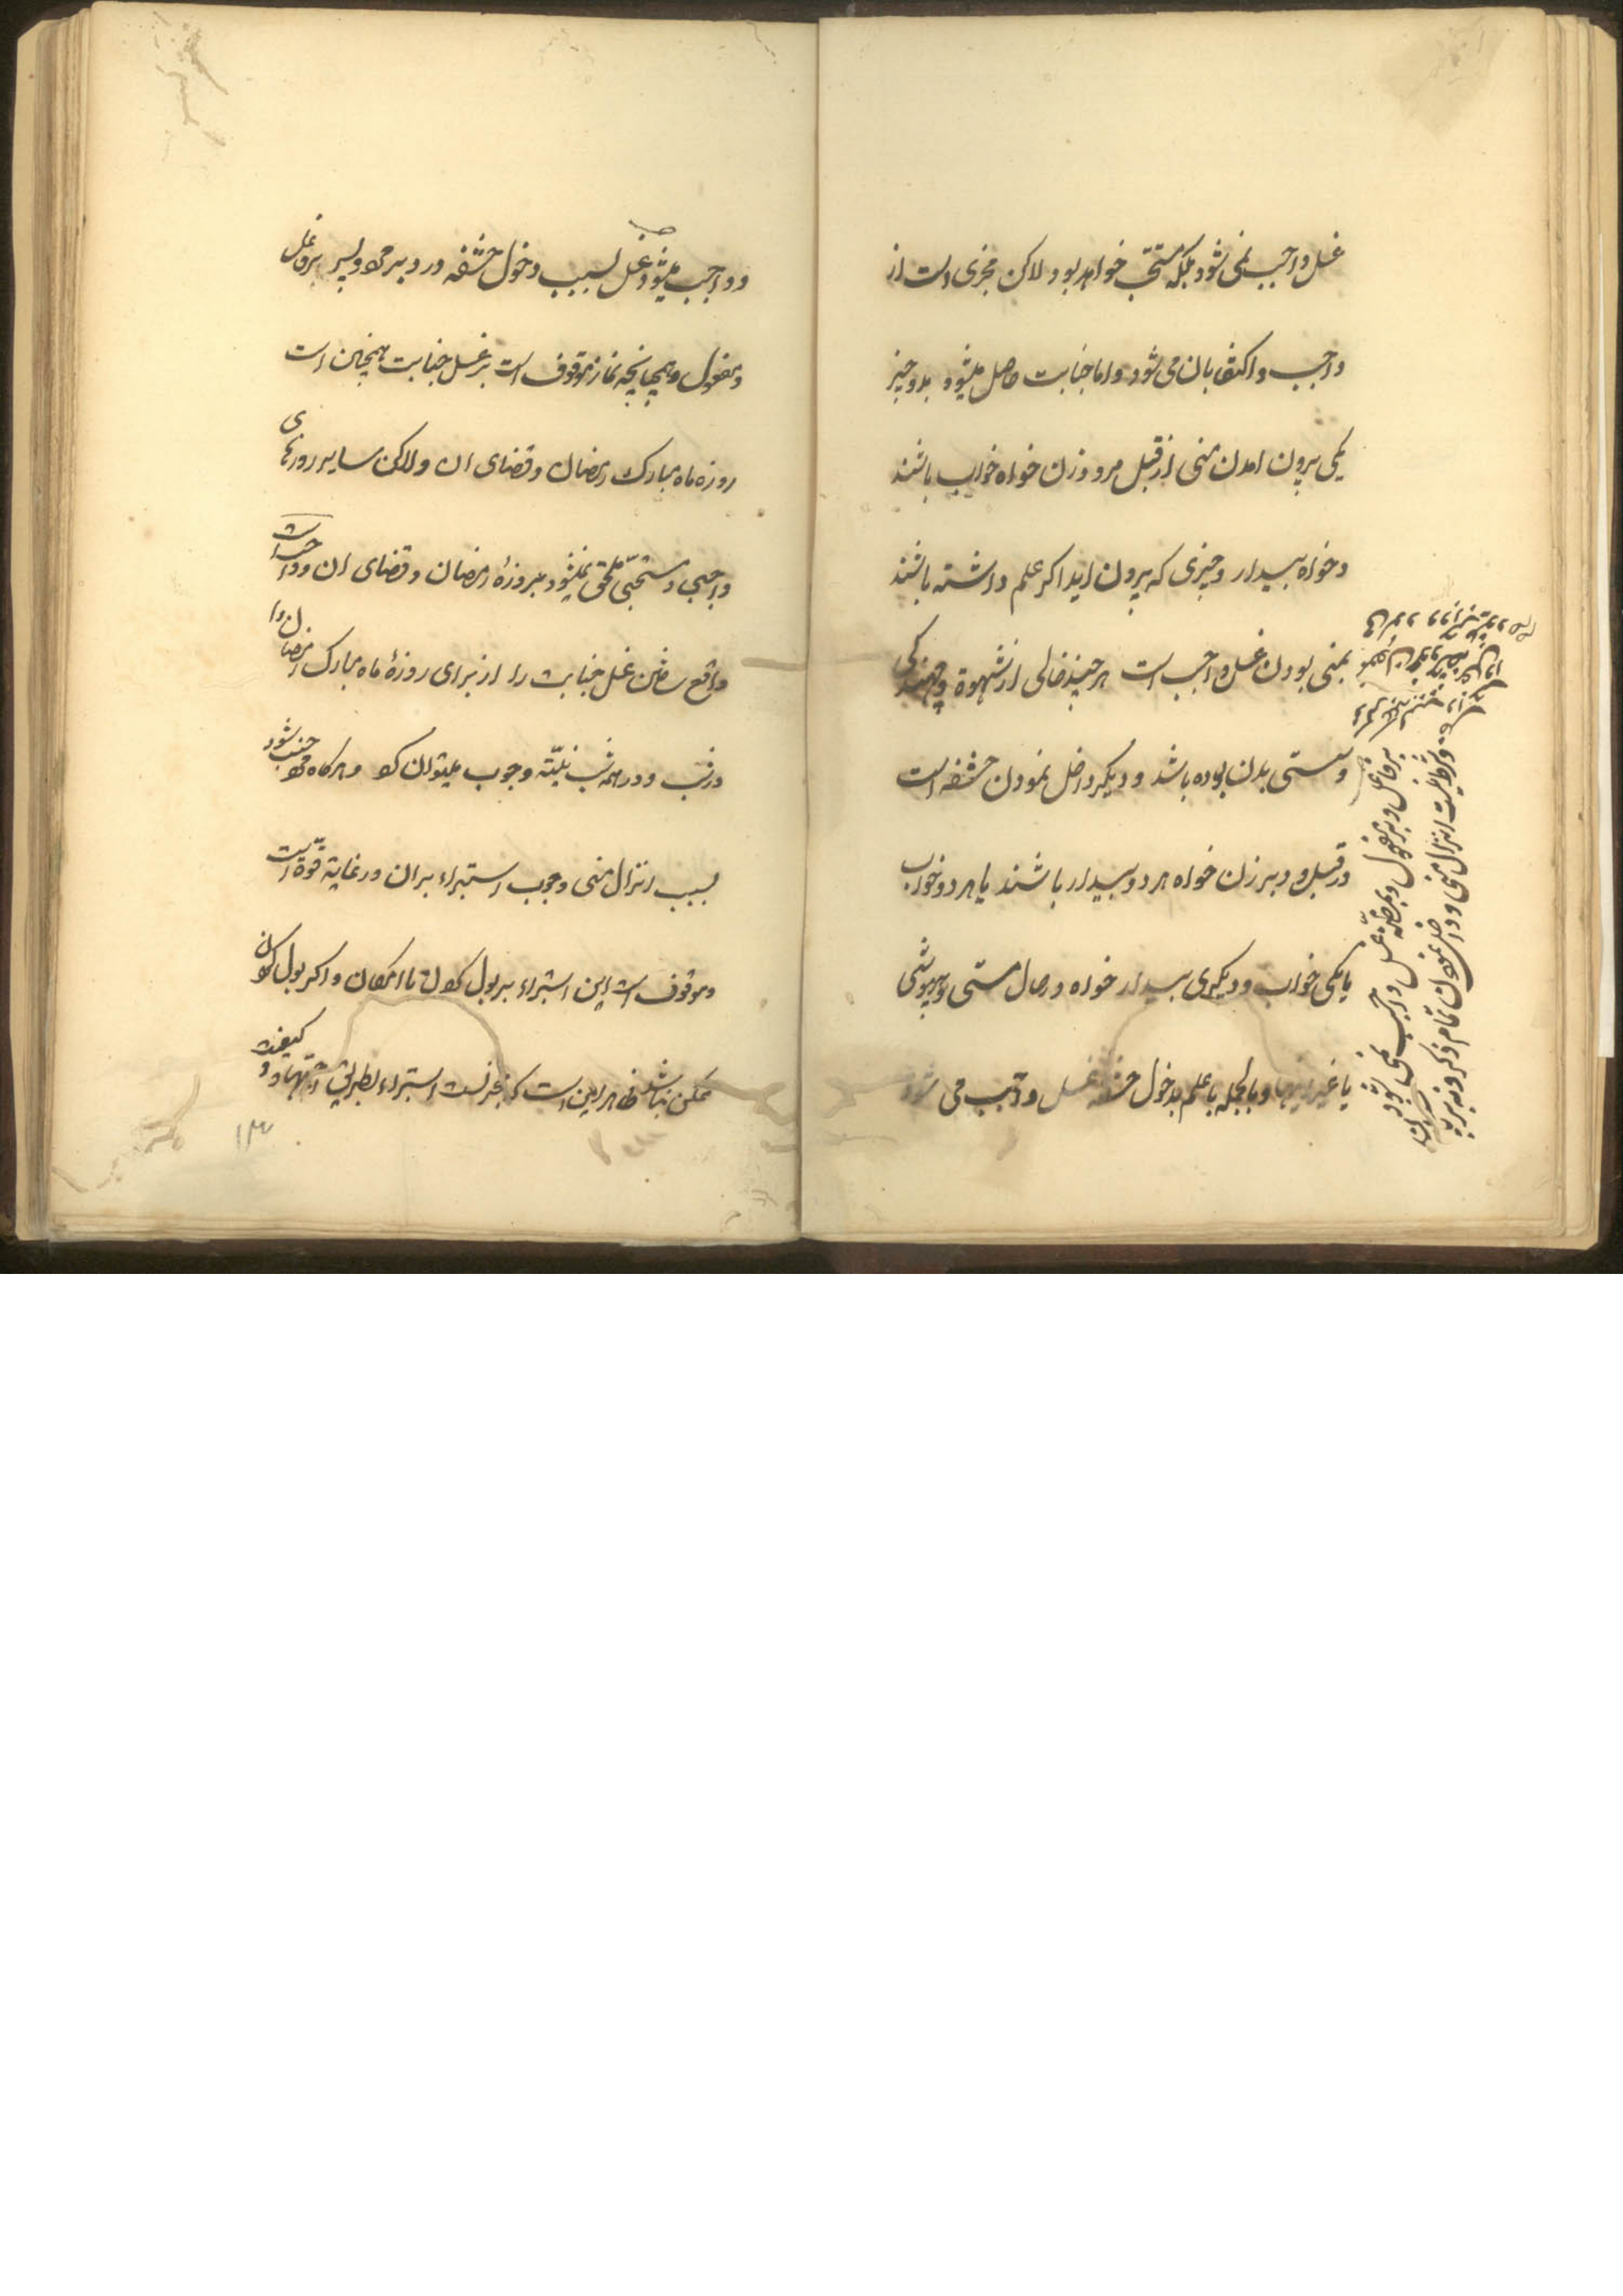 غسل واجب نمی شود بلکه مستحب خواهد بود لاکن مجزی است از
واجب و اکتفا بان می شود و اما جنابت حاصل میشود بدو چیز
یکی بیرون امدن منی از قبل مرد و زن خواه خواب باشند
و خواه بیدار و چیزی که بیرون اید اکر علم داشته باشند
بمنی بودن غسل واجب است هر چند خالی از شهوة و جهندکی
و سستی بدن بوده باشد و دیکر داخل نمودن حشفه است
در قبل و دبر زن خواه هر دو بیدار باشند یا هر دو خواب
یا یکی خواب و دیکری بیدار خواه در حال مستی و بیهوشی
یا غیر اینها و بالجمله با علم بدخول حشفه غسل واجب می شود
و شرط نیست انزال منی و داخل نمودن تمام ذکر و نه بریدن
بر فاعل و بر مفعول و بمظنه غسل واجب نمی شود
و واجب میشود غسل بسبب دخول حشفه در دبر مرد و پسر بر فاعل
و مفعول و همچنانچه نماز موقوف است بر غسل جنابت همچنین است
روزه ماه مبارک رمضان و قضای ان و لاکن سایر روزهای
واجبی و مستحبی ملحق نمیشود بروزهٔ رمضان و قضای ان و واجب است
واقع ساختن غسل جنابت را از برای روزهٔ ماه مبارک رمضان
در شب و در همه شب بنیّته وجوب میتوان کرد و هرکاه مرد جنب شود
بسبب انزال منی وجوب استبراء بر ان در غایة قوّة است
و موقوف است این استبراء ببول کردن با امکان و اکر بول کردن
ممکن نباشد ظاهر این است که استبراء بطریق اجتهاد و کیفیت
۱۳